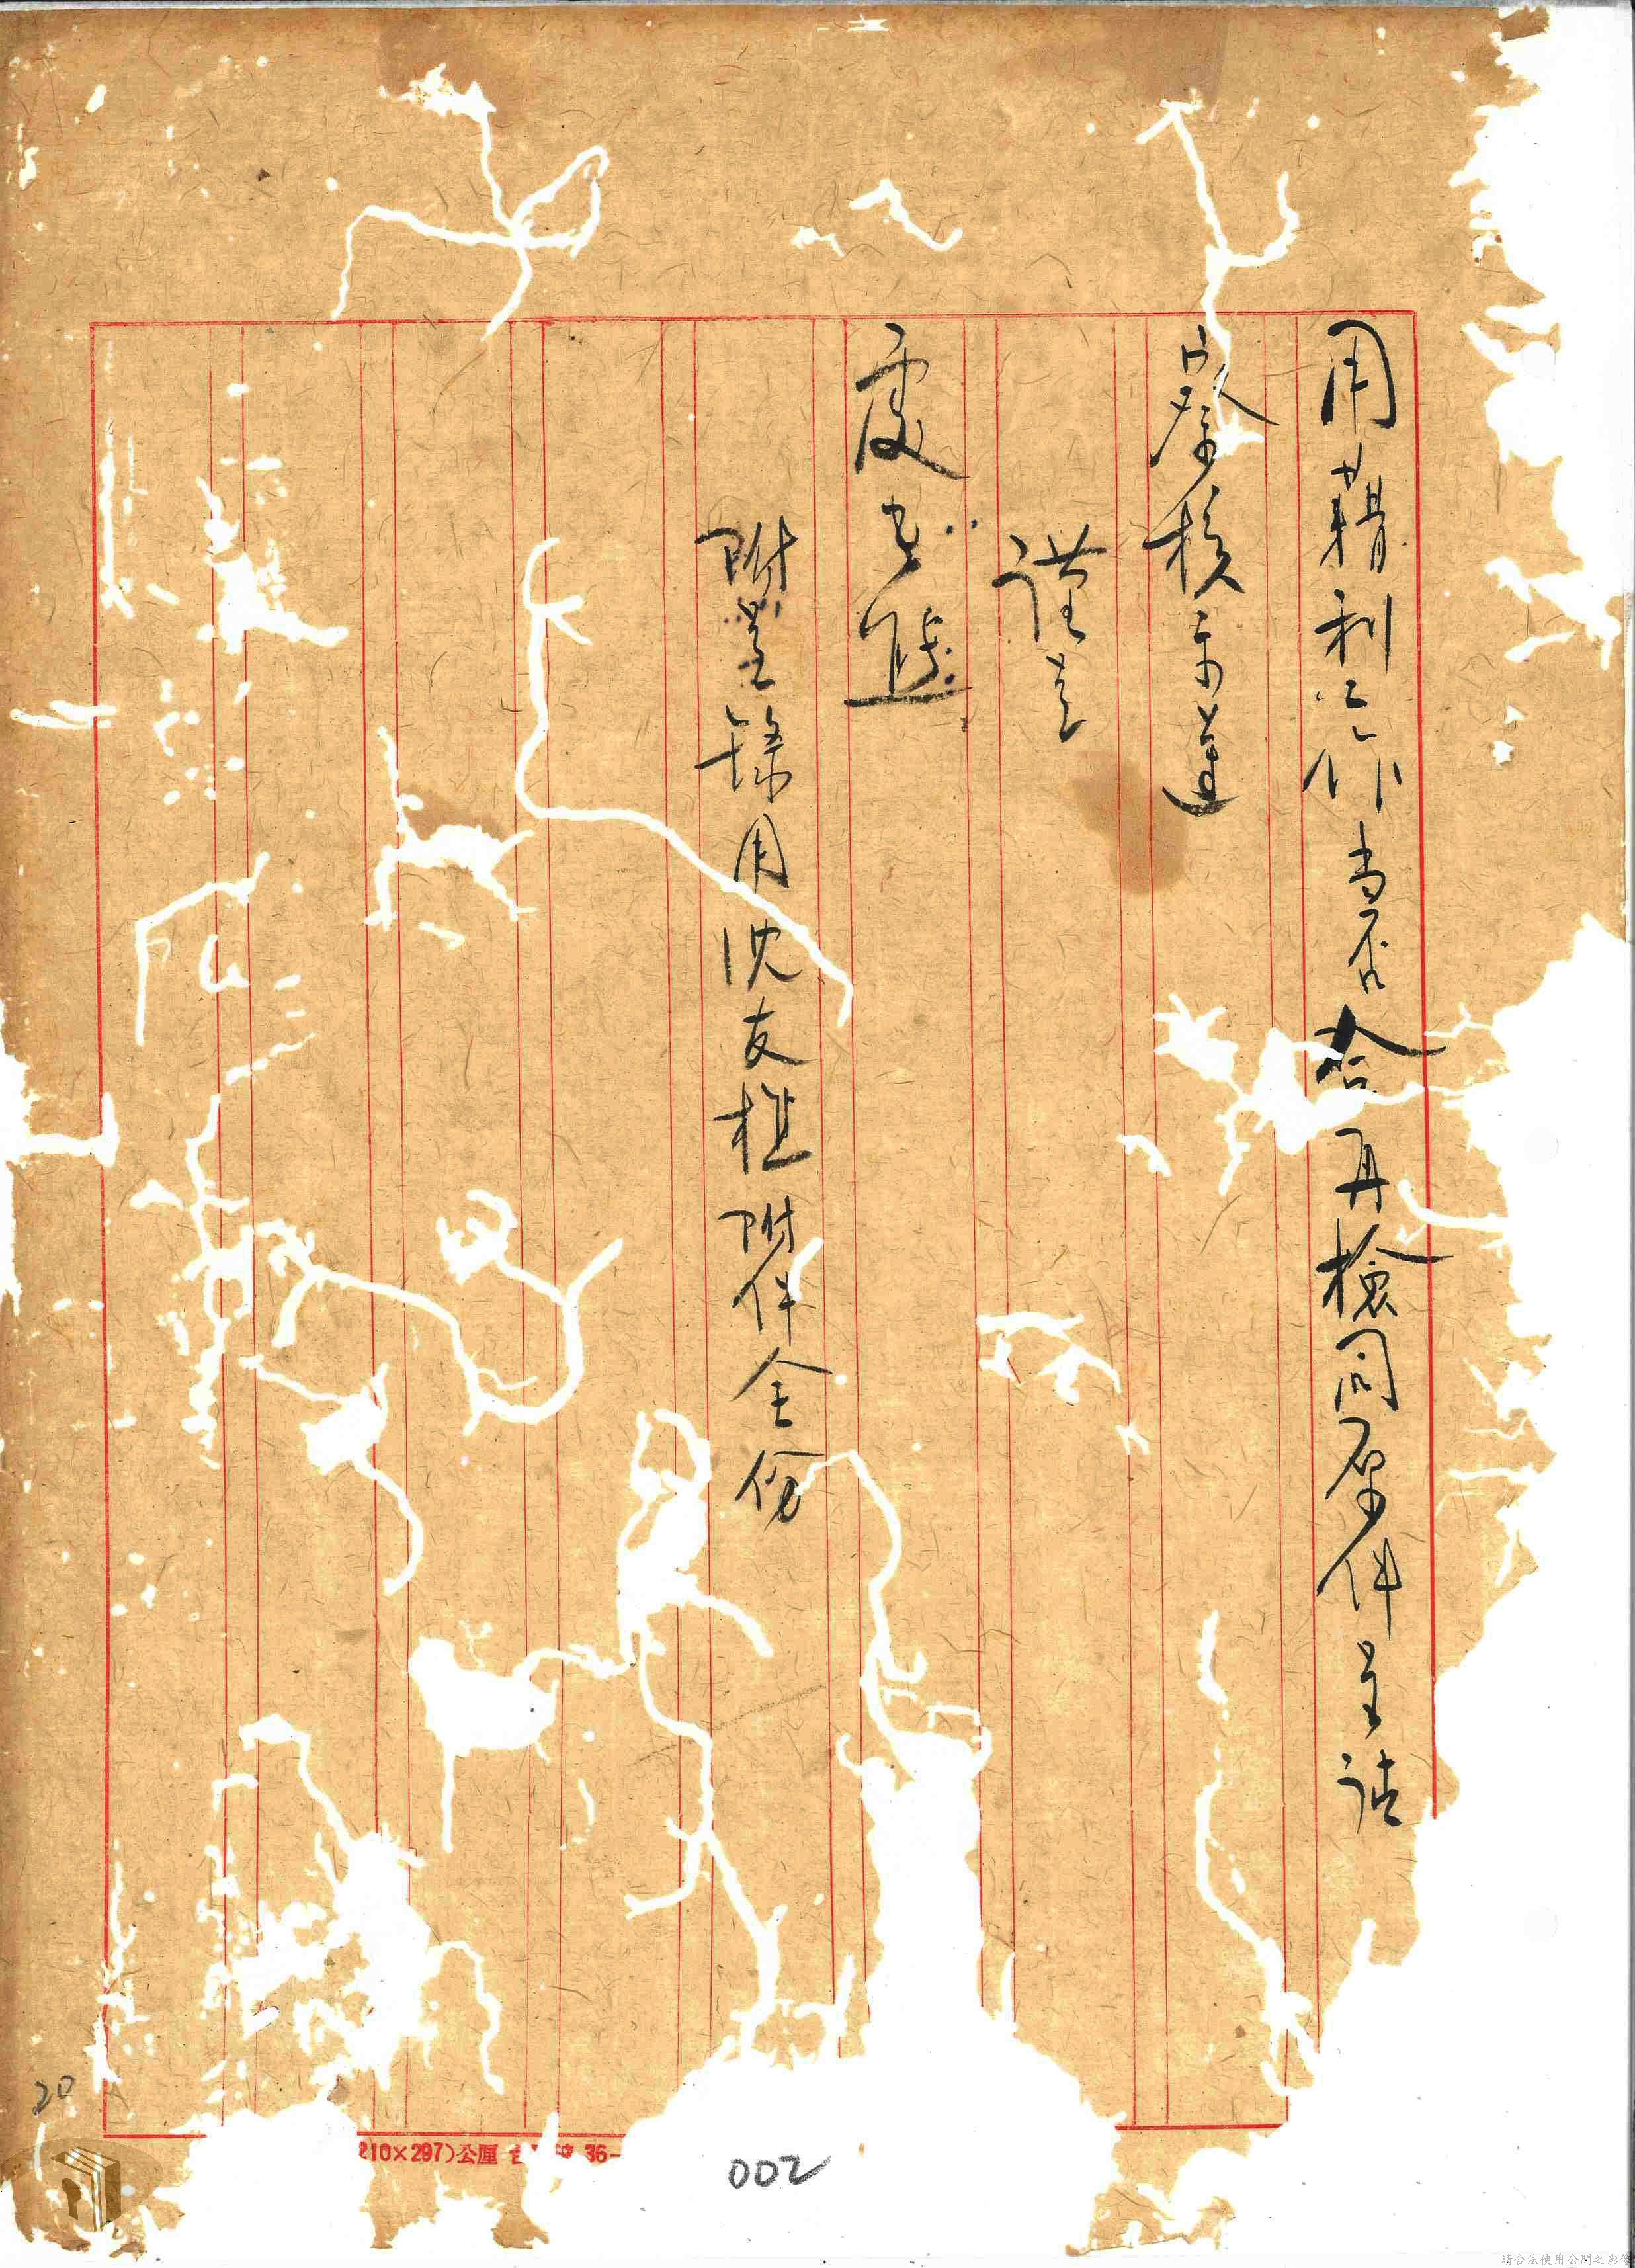 用藉利工作当否合再檢同原件呈請
察核示遵
謹呈
處長
附呈錄用沈友附件全份
210×297)公厘 36-
002
20
請合法使用公開之影像